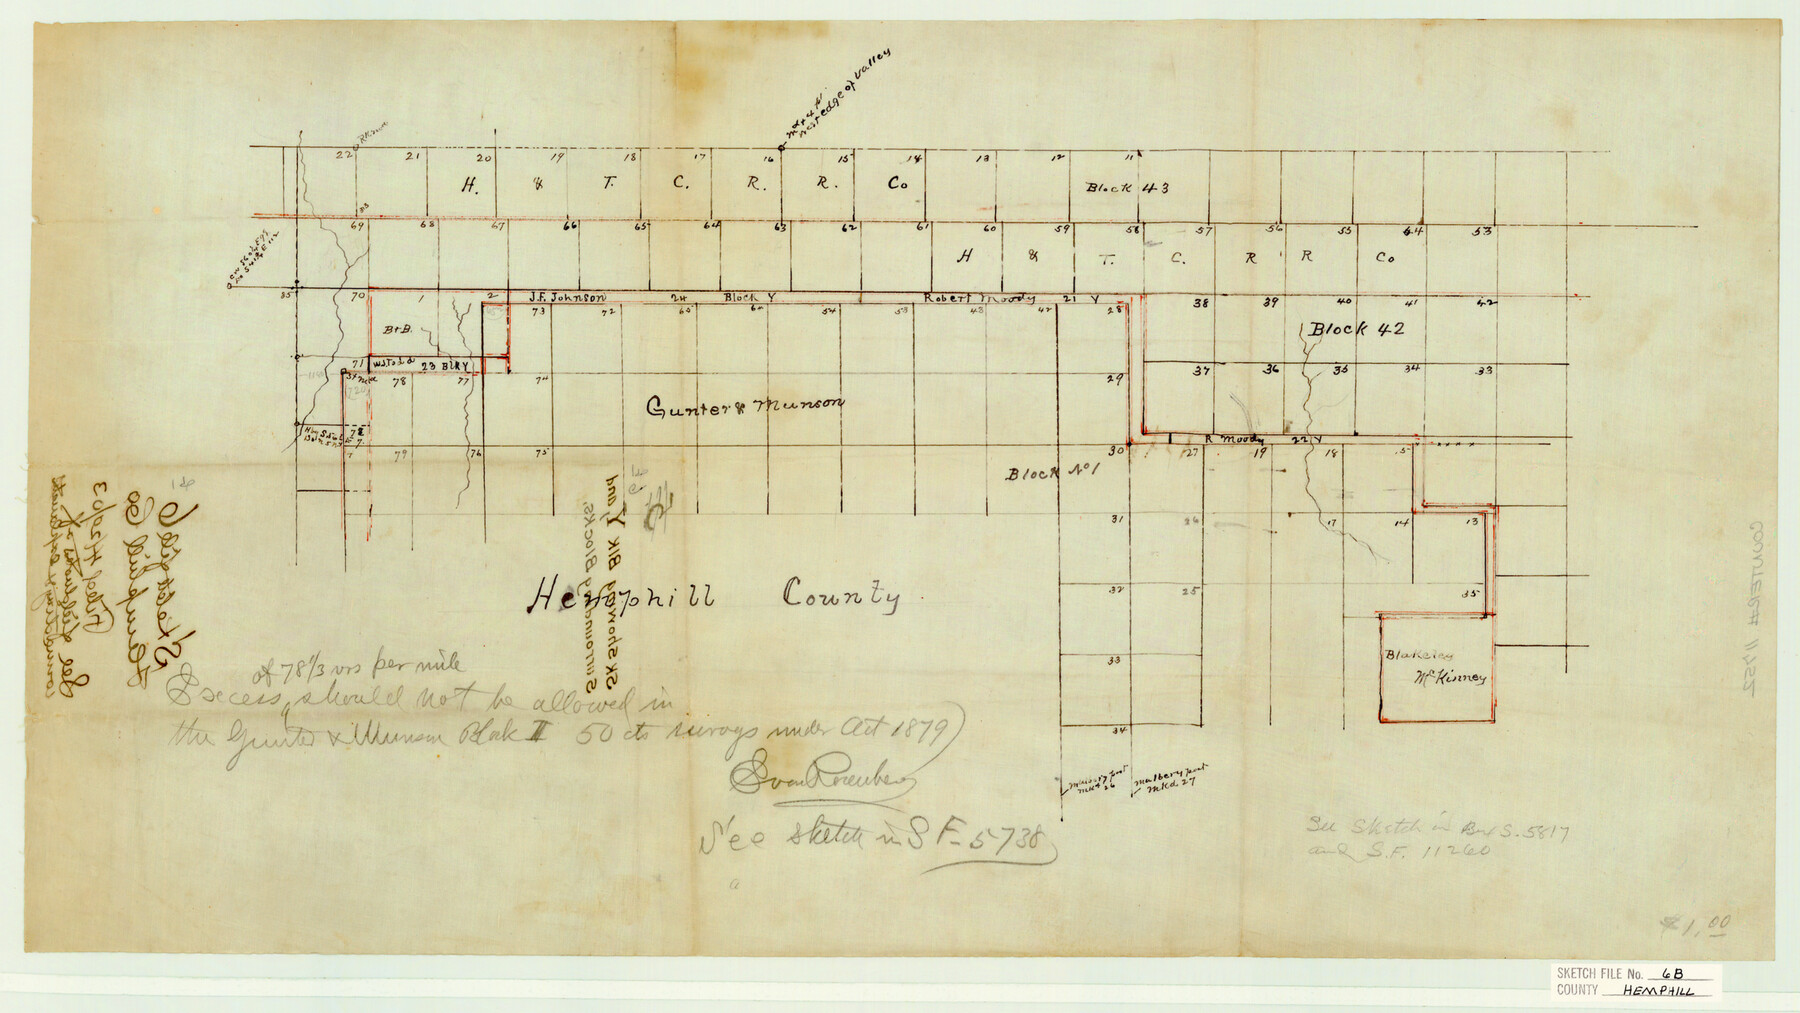 R River
mkd 4 H
west edge of Valley
22 21 20 19 18 17 16 15 14 13 12 11
H. & T. C. R. R. Co Block 43
69 68 67 66 65 64 63 62 61 60 59 58 57 56 55 54 53
H & T. C. R R Co
85 70 1 2 J.F. Johnson 24 Block Y Robert Moody 21 Y
73 72 65 64 54 53 43 42 28 38 39 40 41 42
B&B.
Block 42
71 W.S. Todd 23 Blk Y
78 77 74 29 37 36 35 34 33
Gunter & Munson
R Moody 22 Y
79 76 75 30 27 19 18 15
Block No 1
31 26 17 14 13
32 25 35
Hemphill County
33
Blakeley
McKinney
34
Mulberry post
mkd 26
Mulberry post
mkd 27
Sketch File
Hemphill Co
Filed 4/29/03
See
SK Showing Blk Y and
Surrounding Blocks.
of 78 1/3 vrs per mile
Excess should not be allowed in
the Gunter & Munson Block II 50 cts survays under Act 1879
See sketch in S F-5738
See Sketch in B&S.5817
and S.F. 11260
COUNTER# 11752
$1.00
SKETCH FILE No. 6B
COUNTY HEMPHILL